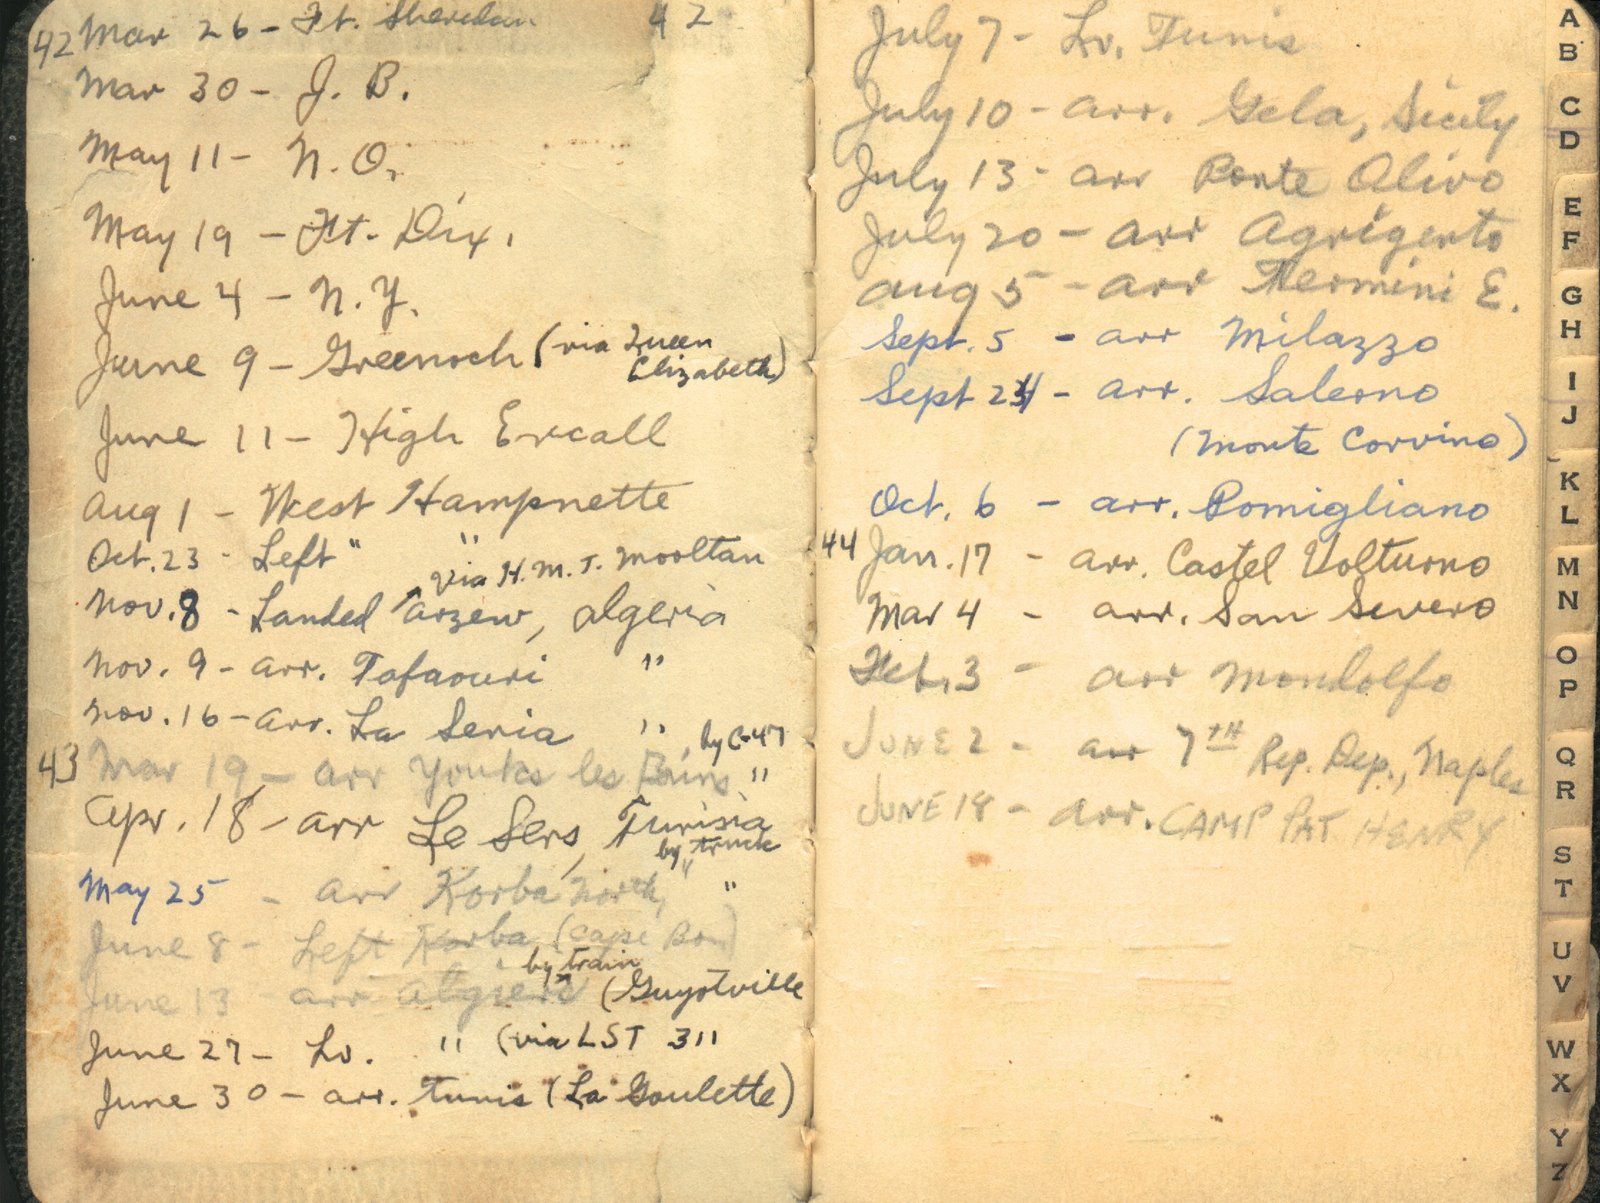 42 Mar 26 - Ft. Sheridan 42
Mar 30 - J. B.
May 11 - N. O.
May 19 - Ft. Dix.
June 4 - N. Y.
June 9 - Greenoch (via Queen
Elizabeth)
June 11 - High Ercall
Aug 1 - West Hampnette
Oct. 23 - Left " "
via H. M. T. Mooltan
Nov. 8 - Landed Arzew, Algeria
Nov. 9 - arr. Tafaouri "
Nov. 16 - arr. La Senia " by C-47
43 Mar 19 - arr Youks les Bains "
Apr. 18 - arr Le Sers, Tunisia
by truck
May 25 - arr Korba North, " "
June 8 - Left Korba (Cape Bon)
by train
June 13 - arr Algiers (Guyotville
June 27 - Lv. " (via LST 311
June 30 - arr. Tunis (La Goulette)
July 7 - Lv. Tunis
July 10 - arr. Gela, Sicily
July 13 - arr Ponte Olivo
July 20 - arr Agrigento
Aug 5 - arr Termini E.
Sept. 5 - arr Milazzo
Sept 24 - arr. Salerno
(Monte Corvino)
Oct. 6 - arr. Pomigliano
44 Jan. 17 - arr. Castel Volturno
Mar 4 - arr. San Severo
Feb. 3 - arr Mondolfo
JUNE 2 - arr 7TH Rep. Dep., Naples
JUNE 18 - arr. CAMP PAT HENRY
A
B
C
D
E
F
G
H
I
J
K
L
M
N
O
P
Q
R
S
T
U
V
W
X
Y
Z